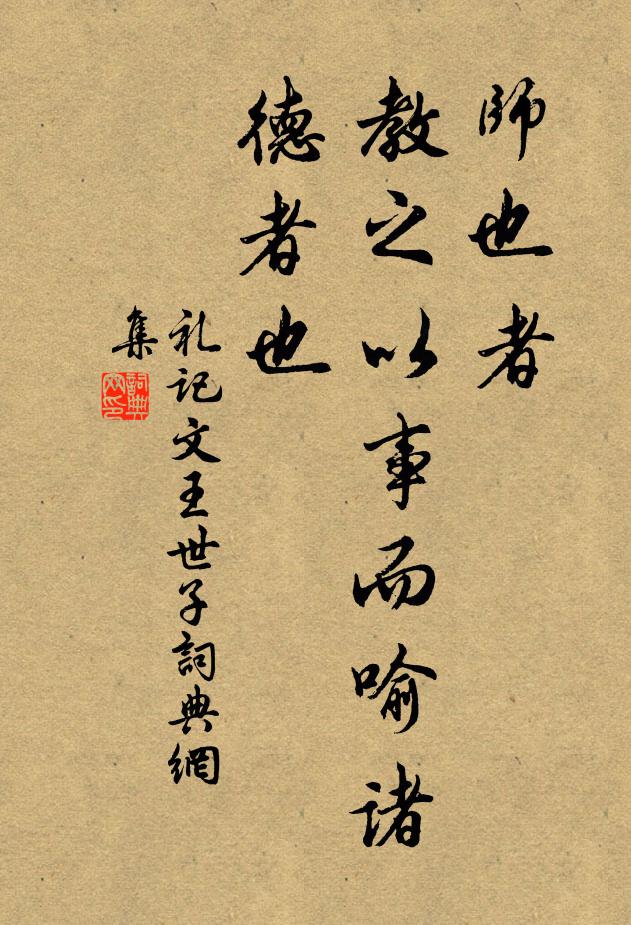 師也者
教之以事而喻諸
德者也
礼記文王世子詞典網
集
詞典网印